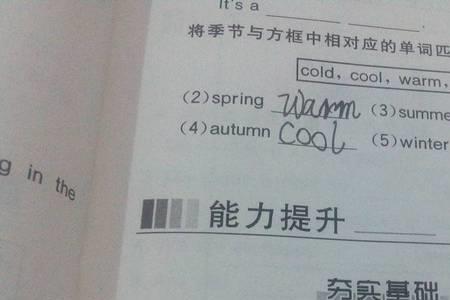 It's a
将季节与方框中相对应的单词匹
cold, cool, warm,
(2)spring warm (3)summe
(4)autumn cool (5)winter
g in the
能力提升
夯实基础